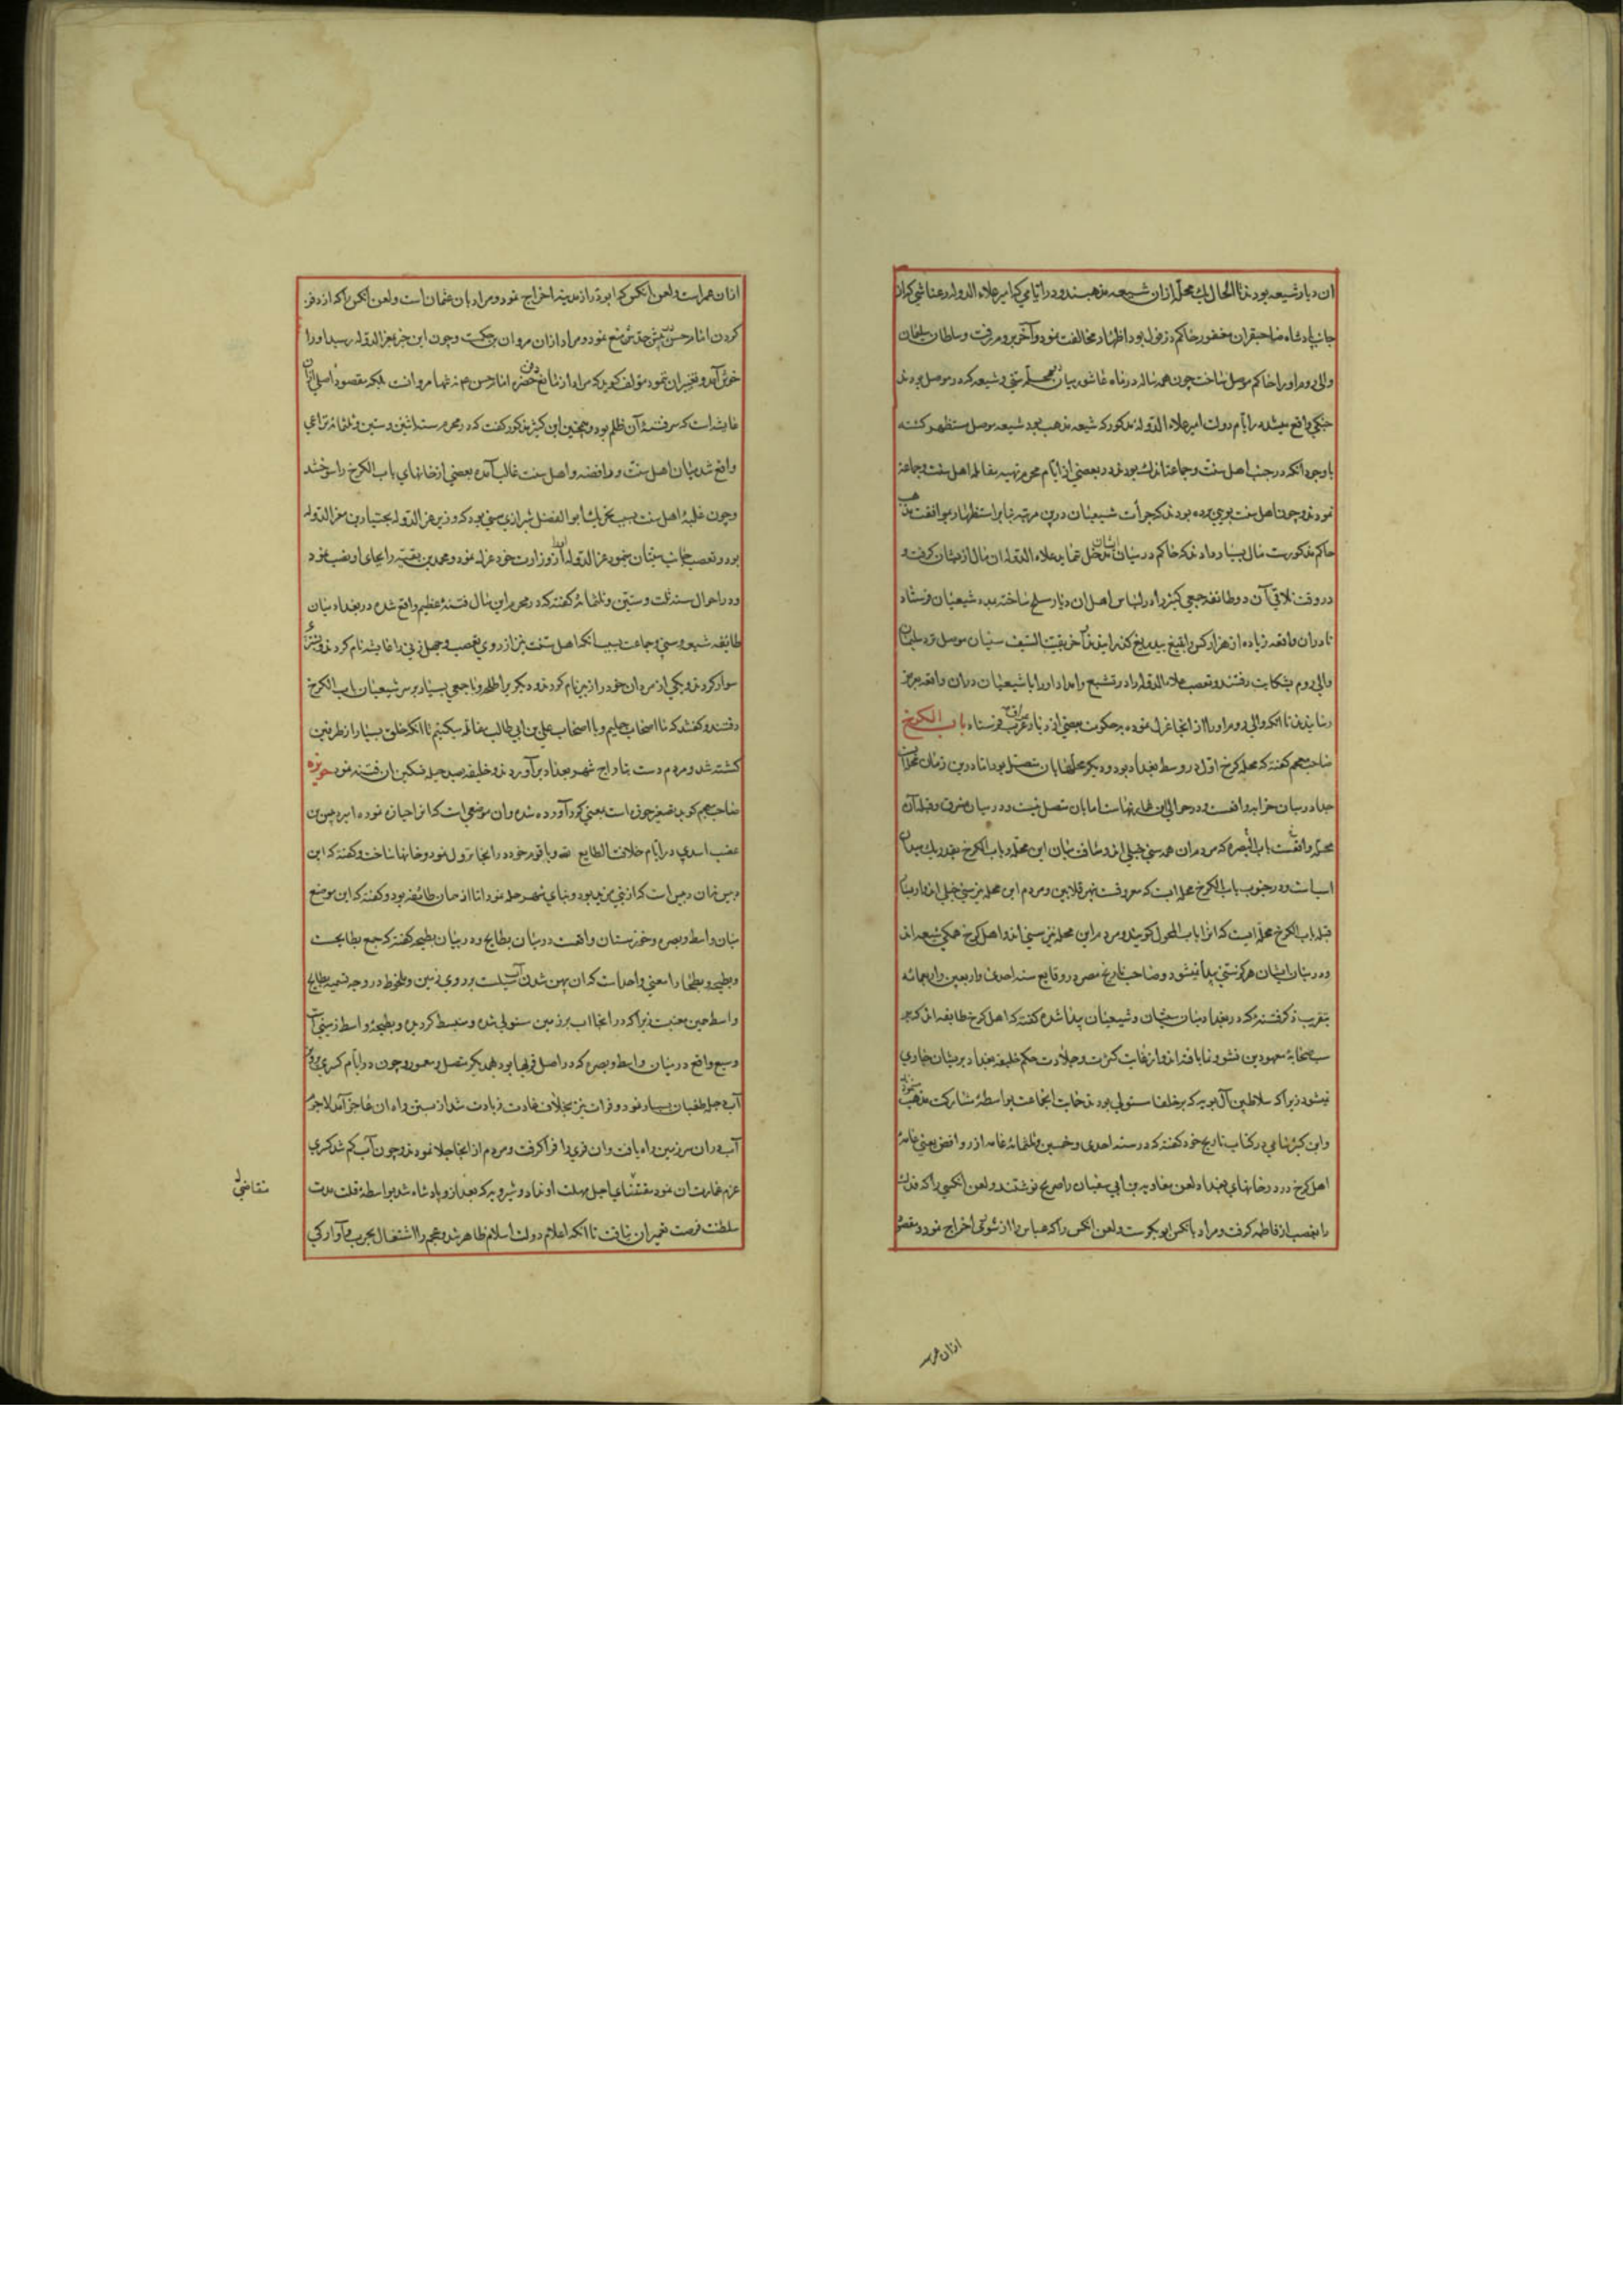 ان دیار شیعه بودند تا الحال یک محلّه ازان شیعه مذهبند و در ایامی که امیر علاء الدوله رعناشی که از
جانب پادشاه صاحبقران مغفور حاکم دزفول بود اظهار مخالفت نمود و آخر بروم رفت و سلطان سلیمان
والی روم او را حاکم موصل ساخت چون همه ساله در ماه عاشور میان محله سنی و شیعه که در موصل بودند
جنکی واقع میشد در ایام دولت امیر علاء الدوله مذکور که شیعه مذهب بود شیعه موصل مستظهر کشته
با وجود انکه در جنب اهل سنت و جماعت اندک بودند در بعضی از ایام محرم تهیه مقاتله اهل سنت و جماعت
نمودند و چون اهل سنت پی برده بودند که جرأت شیعیان درین مرتبه بنا بر استظهار بموافقت مذهب
حاکم مذکورست مال بسیار دادند که حاکم در میان ایشان مدخل ننماید علاء الدوله ان مال ازیشان کرفت و
در وقت تلاقی آن دو طائفه جمعی کثیر را در لباس اهل ان دیار مسلح ساخته بمدد شیعیان فرستاد
تا دران واقعه زیاده از هزار کس را بتیغ بیدریغ کذرانیدند آخر بقیة السیف سنیان موصل نزد سلیمان
والی روم بشکایت رفتند و تعصب علاء الدوله را در تشیع و امداد او را با شیعیان دران واقعه بعرض
رسانیدند تا انکه والی روم او را از انجا عزل نموده بحکومت بعضی از دیار عرب فرستاد باب الکرخ
صاحب معجم کفته که محله کرخ اول در وسط بغداد بود و دیکر محلها بان متصل بود اما درین زمان محله ان
جدا در میان خرابه واقعست و در حوالی ان محلها است اما بان متصل نیست و در میان مشرق و قبله آن
محله واقعست باب البصره که مردم ان همه سنی حنبلی اند و مسافت میان این محله و باب الکرخ بقدر یک میدان
اسب است و در جنوب باب الکرخ محله ایست که معروفست بنهر قلایین و مردم این محله نیز سنی حنبلی اند و از یسار
قبله باب الکرخ محله ایست که انرا باب المحول کویند و مردم این محله نیز سنی اند و اهل کرخ همکی شیعه اند
و در میان ایشان هرکز سنی پیدا نیشود و صاحب تاریخ مصر در وقایع سنه احدی و اربعین و اربعمائه
بتقریب ذکر فتنه که در بغداد میان سنیان و شیعیان پیدا شده کفته که اهل کرخ طایفه اند که بر
سب صحابه معهودین نشو و نما یافته اند و از غایت کثرت و جلادت حکم خلیفه بغداد بریشان جاری
نیشود زیرا که سلاطین آل بویه که بر خلفا مستولی بودند حمایت انجماعت بواسطه مشارکت مذهب مینمودند
و ابن کثیر شامی در کتاب تاریخ خود کفته که در سنه احدی و خمسین و ثلثمائه عامه از روافض یعنی عامه
اهل کرخ در در خانهای بغداد لعن معاویه بن ابی سفیان را صریح نوشتند و لعن انکسی را که فدک
را بغصب از فاطمه کرفت و مراد بانکس ابوبکر است و لعن انکس را که عباس را از شوری اخراج نمود و مقصود
ازان عمر است
ازان عمر است و لعن انکس که ابوذر را از مدینه اخراج نمود و مراد بان عثمان است و لعن انکس را که از دفن
کردن امام حسن پیش جدش منع نمود و مراد ازان مروان بن حکم است و چون این خبر بمعز الدوله رسید او را
خوش آمد و تغییر ان ننمود مؤلف کوید که مراد از مانع دفن حضرت امام حسن ع م نه تنها مروانست بلکه مقصود اصلی ازان
عایشه است که سر فتنه آن ظلم بود و همچنین ابن کثیر مذکور کفت که در محرم سنه اثنین و ستین و ثلثمائه نزاعی
واقع شد میان اهل سنت و رافضه و اهل سنت غالب آمده بعضی از خانهای باب الکرخ را سوختند
و چون غلبه اهل سنت بسبب تحریک ابو الفضل شیرازی سنی بود که وزیر عز الدوله بختیار بن معز الدوله
بود و تعصب جانب سنیان مینمود عز الدوله او را از وزارت خود عزل نمود و محمد بن بقیه را بجای او نصب نمود
و در احوال سنه ثلث و ستین و ثلثمائه کفته که در محرم این سال فتنه عظیم واقع شد در بغداد میان
طایفه شیعه و سنی و جماعت بسبب انکه اهل سنت نیز از روی تعصب و جهل زنی را عایشه نام کردند و بشتر
سوار کردند و یکی از مردان خود را زبیر نام کردند و دیکر یرا طلحه و با جمعی بسیار بر سر شیعیان باب الکرخ
رفتند و کفتند که ما اصحاب جملیم و با اصحاب علی بن ابی طالب مقاتله میکنیم تا انکه خلق بسیار از طرفین
کشته شد و مردم دست بتاراج شهر بغداد برآوردند و خلیفه بصد حیله تسکین ان فتنه نمود حویزه
صاحب معجم کوید تصغیر حوزه است یعنی کرد آورده شده وان موضعی است که انرا حیازه نموده امیر دبیس بن
عفیف اسدی در ایام خلافت الطایع لله و با قوم خود در انجا نزول نمود و خانها ساخت و کفته که این
دبیس نه ان دبیس است که از بنی مزید بود و بنای شهر حله نمود اما از همان طائفه بود و کفته که این موضع
میان واسط و بصره و خوزستان واقعست در میان بطایح و در بیان بطیحه کفته که جمع بطایحست
و بطیحه و بطحا را معنی واحد است که ان پهن شدن آب سیلست بر روی زمین و ملحوظ در وجه تسمیه بطایح
واسط همین معنیست زیرا که در انجا اب بر زمین مستولی شده و منبسط کردیده و بطیحه واسط زمینی است
وسیع واقع در میان واسط و بصره که در اصل قریها بود بهمدیکر متصل و معمور و چون در ایام کسری پرویز
آب دجله طغیان بسیار نمود و فرات نیز بخلاف عادت زیادت شد از بستن راه ان عاجز آمد لاجرم
آب دران سرزمین راه یافت و ان قری را فرا کرفت و مردم از انجا جلا نمودند و چون آب کم شد کسری
عزم عمارت ان نمود مقتضای اجل مهلت او نداد و شیرویه که بعد ازو پادشاه شد بواسطه قلت مدت
متقاضی
سلطنت فرصت تعمیر ان نیافت تا انکه اعلام دولت اسلام ظاهر شد و عجم را اشتغال بحرب و آوارکی